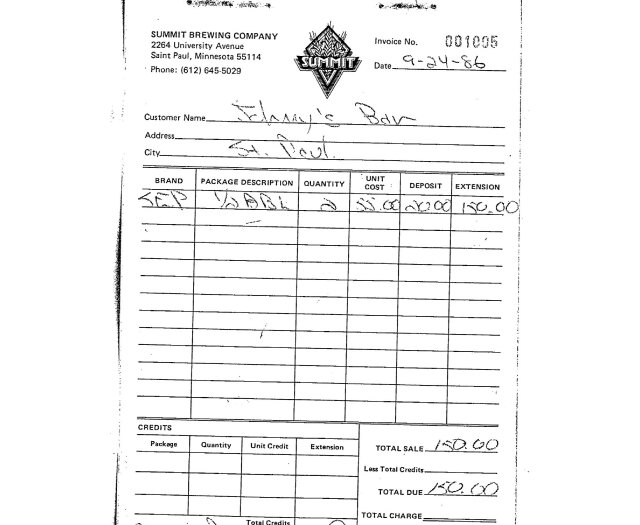 SUMMIT BREWING COMPANY
2264 University Avenue
Saint Paul, Minnesota 55114
Phone: (612) 645-5029
SUMMIT
Invoice No. 001005
Date 9-24-86
Customer Name Johnny's Bar
Address
City St. Paul
BRAND PACKAGE DESCRIPTION QUANTITY UNIT COST DEPOSIT EXTENSION
SEP 1/2 BBL 2 55.00 20.00 150.00
CREDITS
Package Quantity Unit Credit Extension
TOTAL SALE 150.00
Less Total Credits
TOTAL DUE 150.00
TOTAL CHARGE
Total Credits